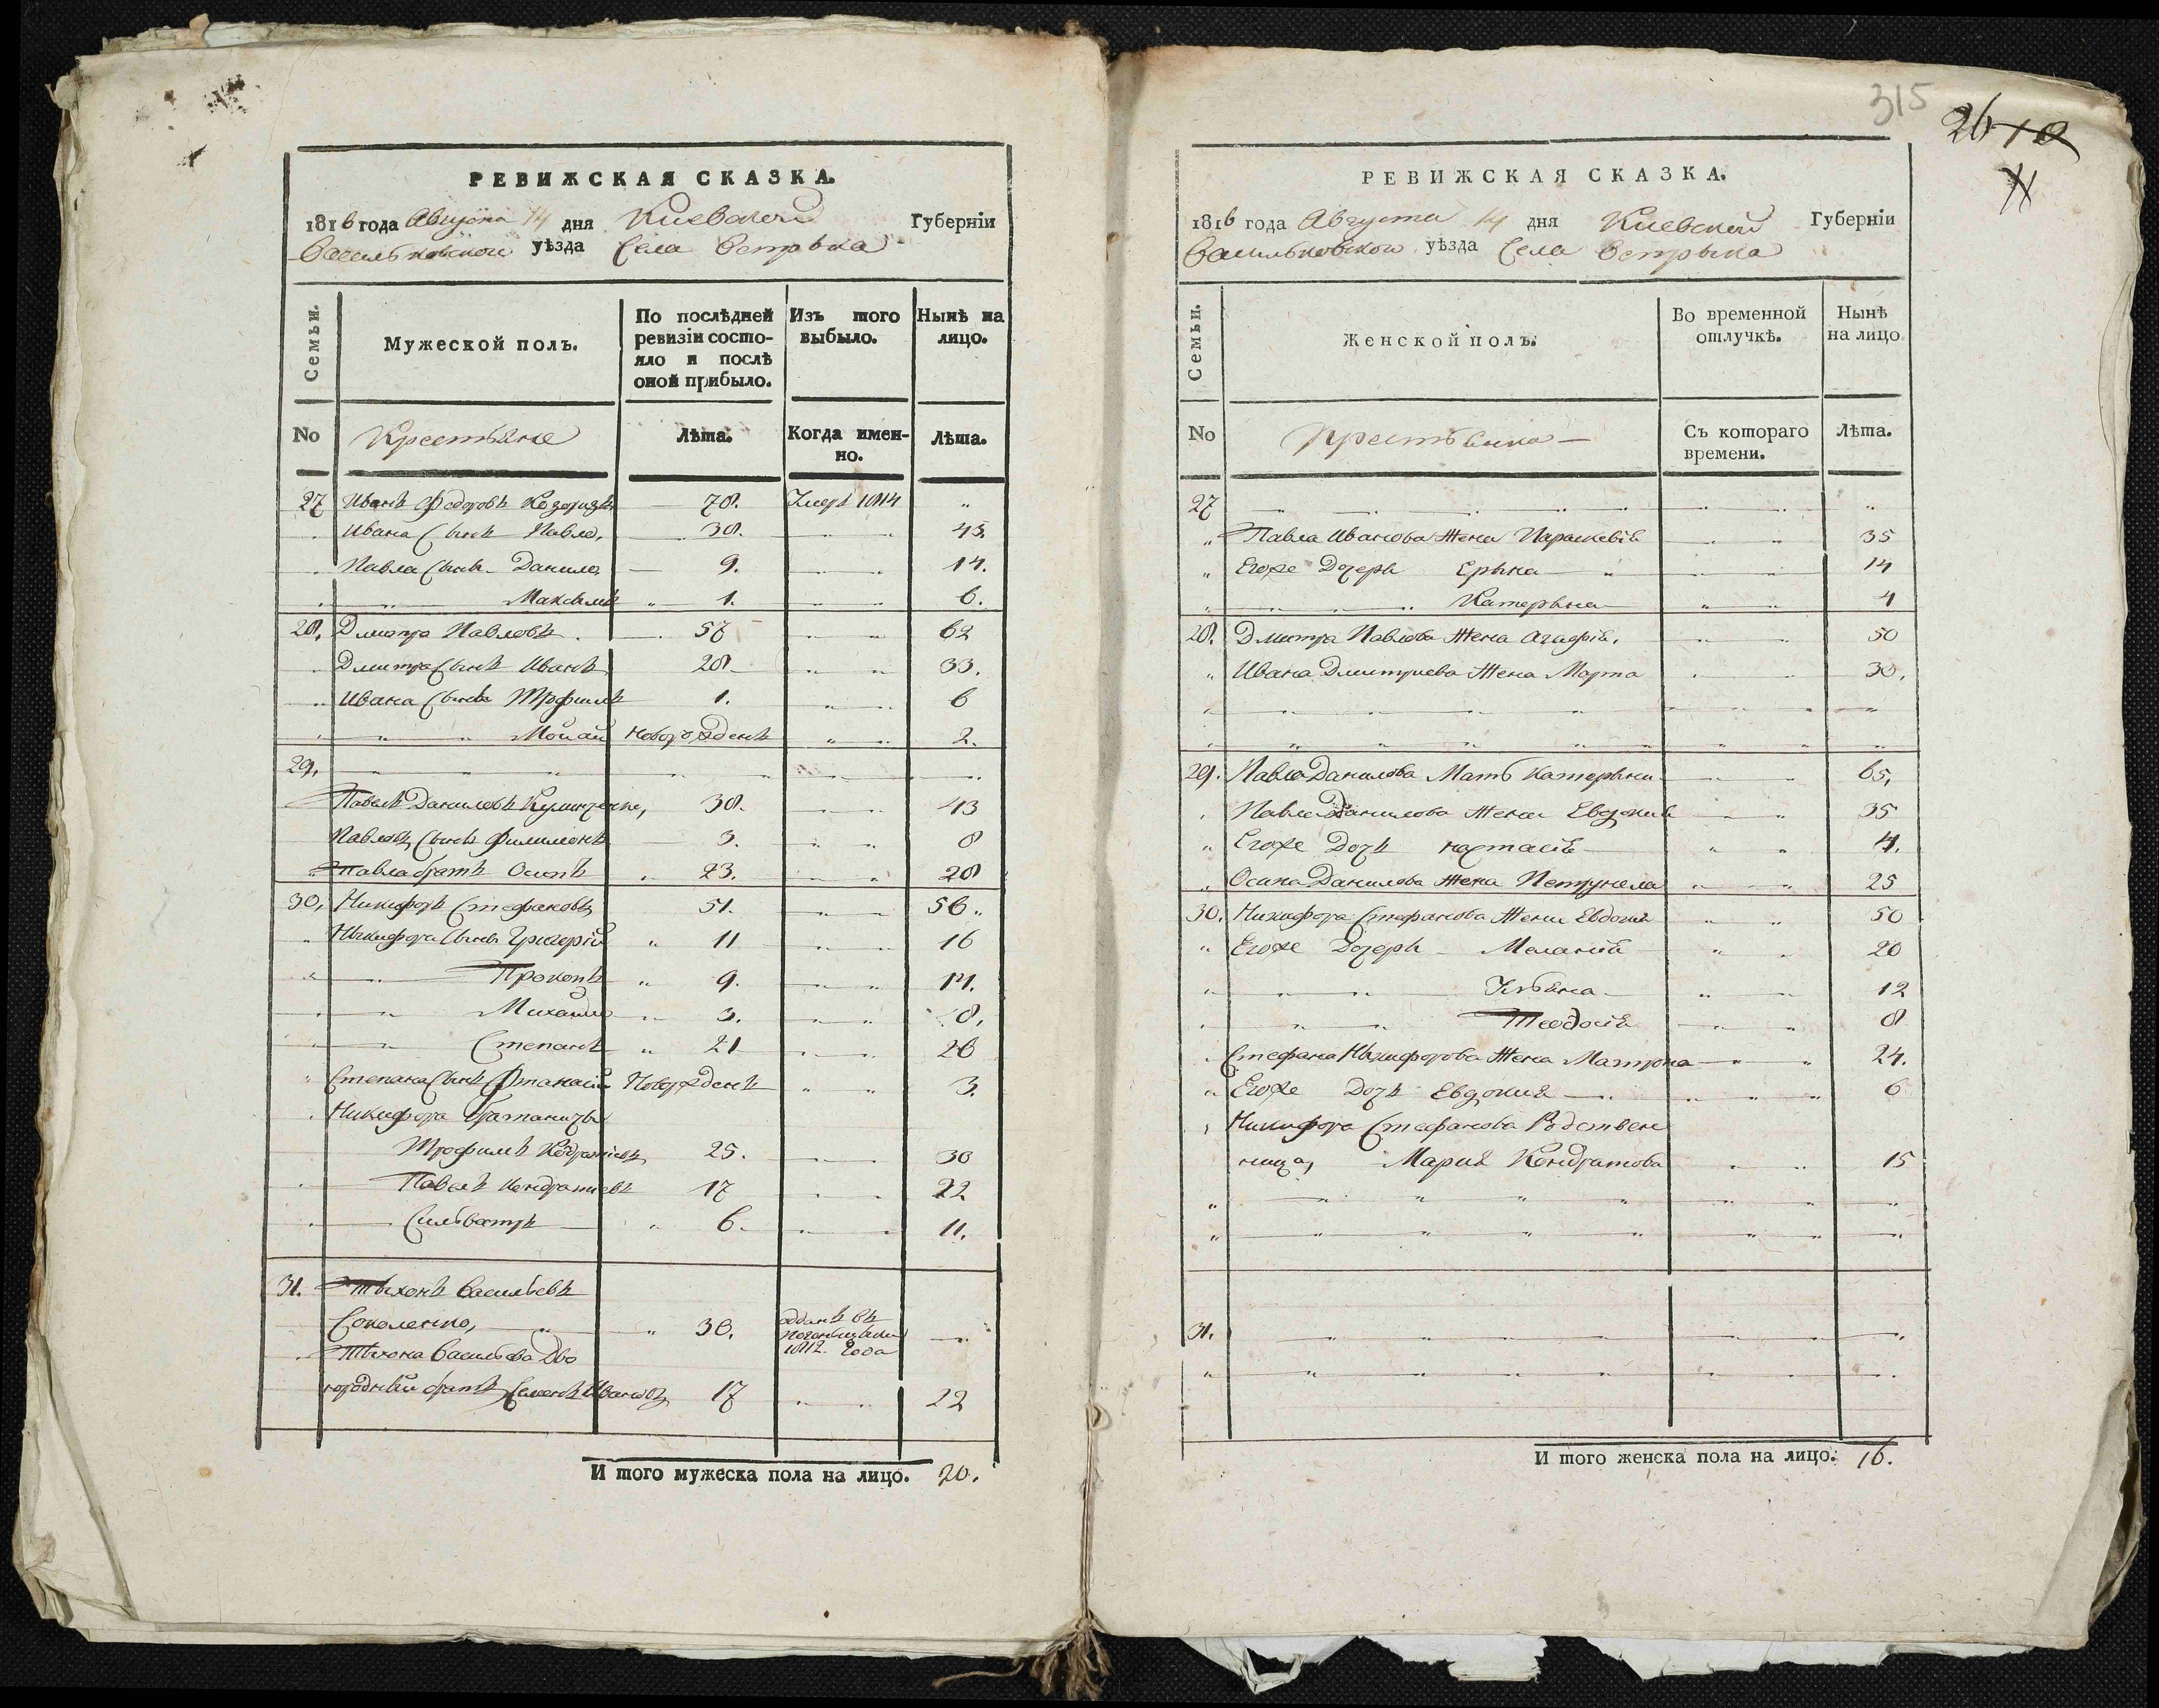 РЕВИЖСКАЯ СКАЗКА.
1816 года Августа 14 дня Киевской Губернїи
Васильковской уѣзда Села Острыка
Семьи.
Мужеской полъ.
По послѣдней ревизїи состояло и послѣ оной прибыло.
Изъ того выбыло.
Нынѣ на лицо.
No Крестьяне Лѣта. Когда именно. Лѣта.
27 Иванъ Федоровъ 78. Умеръ 1814 "
Ивана Сынъ Павло, 38. 43.
Павла Сынъ Данило, 9. 14.
Максимъ 1. 6.
28. Дмитро Павловъ 57 62
Дмитра Сынъ Иванъ 28 33.
Ивана Сынъ Трофимъ 1. 6
Мойсей Новорожденъ 2.
29.
Павелъ Даниловъ 38. 43
Павловъ Сынъ Филимонъ 3. 8
Павла братъ Осипъ 23. 28
30. Никифоръ Стефановъ 51. 56
Никифора Сынъ Григорїй 11 16
Прокопъ 9. 14.
Михайло 3. 8.
Степанъ 21 26
Степана Сынъ Афанасїй Новорожденъ 3.
Никифора братаничъ
Трофимъ Кондратїевъ 25. 30
Павелъ Кондратиевъ 17 22
Сильвестръ 6. 11.
31. Тихонъ Васильевъ
Соколенко, 30. отданъ въ
1812 года
Тихона Васильева Дво
юродный братъ Семенъ Ивановъ 17 22
И того мужеска пола на лицо. 20.
315
26
РЕВИЖСКАЯ СКАЗКА.
1816 года Августа 14 дня Киевской Губернїи
Васильковской уѣзда Села Острыка
Семьи.
Женской полъ.
Во временной отлучкѣ.
Нынѣ на лицо
No Крестьянка Съ котораго времени. Лѣта.
27
Павла Иванова Жена Параскевїя 35
Егоже Дочери Ерына 14
Катерына 4
28. Дмитра Павлова Жена Агафїя. 50
Ивана Дмитриева Жена Марта 30.
29. Павла Данилова Мать Катерына 65.
Павла Данилова Жена Евдокия 35
Егоже Дочь Настасїя 4.
Осипа Данилова Жена Петрунела 25
30. Никифора Стефанова Жена Евдокия 50
Егоже Дочери Меланїя 20
Ульяна 12
Теодосїя 8
Стефана Никифорова Жена Матрона 24.
Егоже Дочь Евдокия 6
Никифора Стефанова Родствен
ница, Мария Кондратова 15
31.
И того женска пола на лицо: 16.